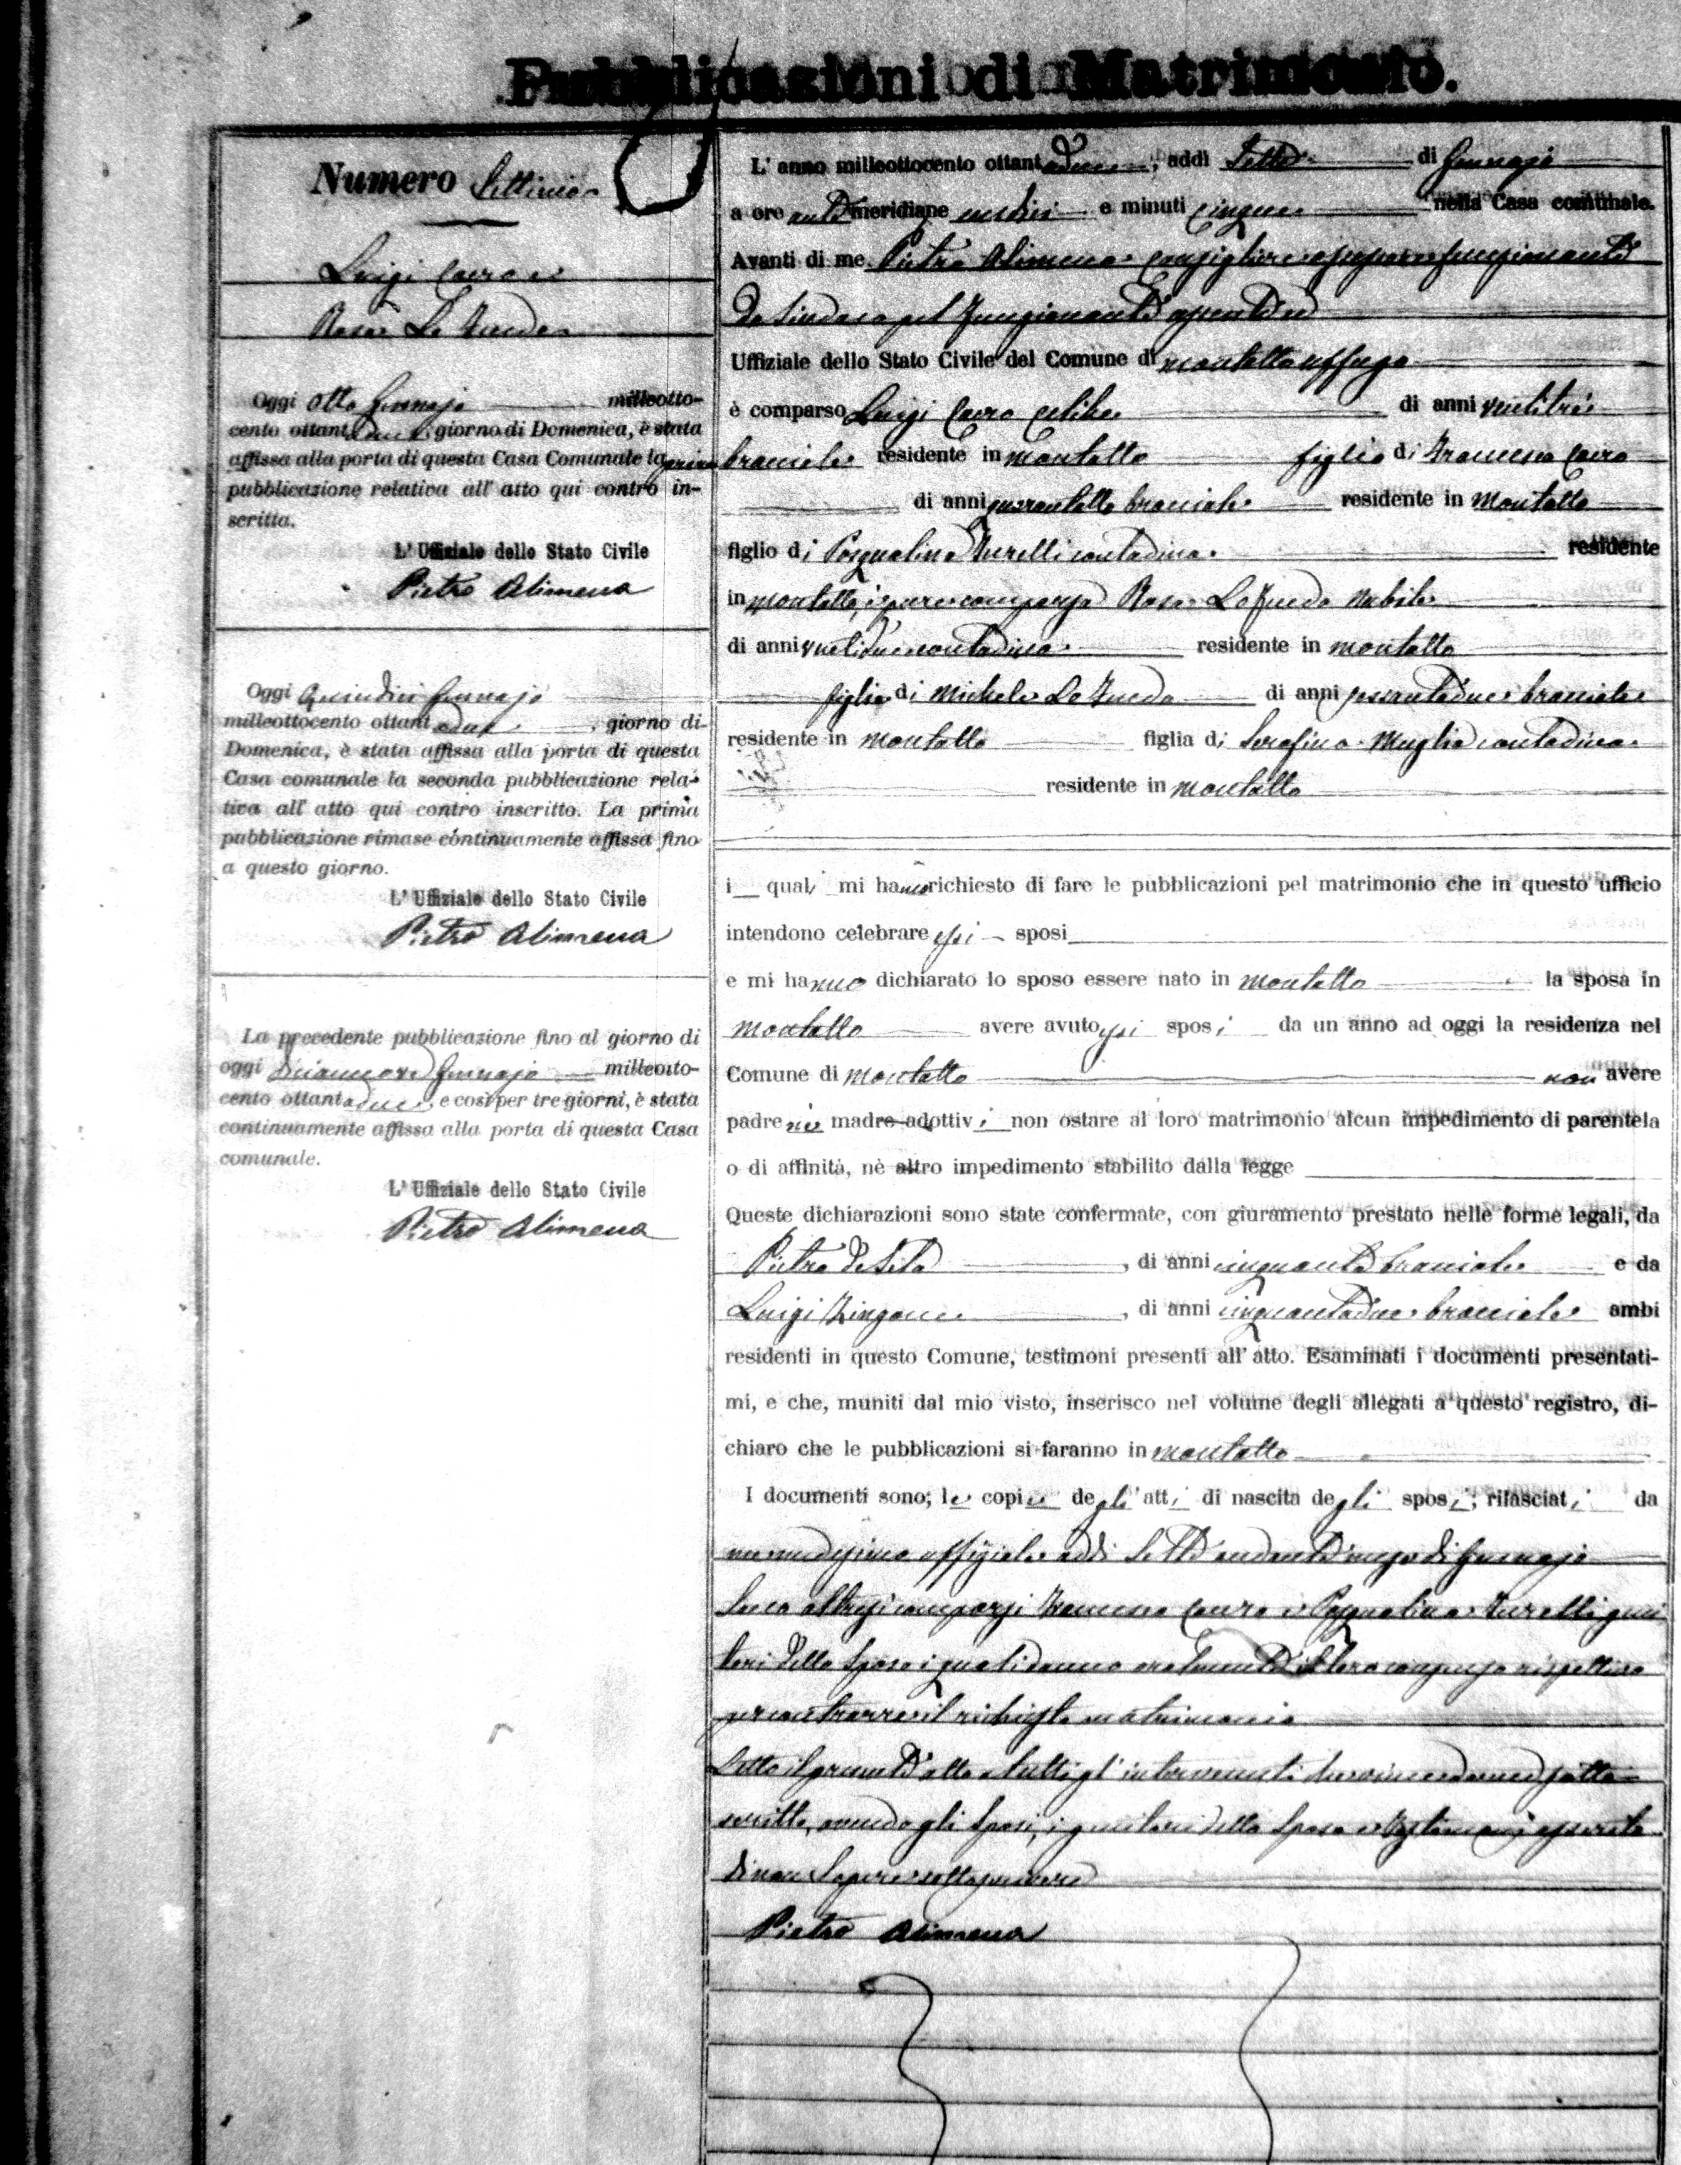 Pubblicazioni di Matrimonio.
Numero Settimo
Luigi Cairo e
Rosa Lo Feudo
Oggi otto Gennajo milleotto-
cento ottantadue giorno di Domenica, è stata
affissa alla porta di questa Casa Comunale la prima
pubblicazione relativa all' atto qui contro in-
scritta.
L' Uffiziale dello Stato Civile
Pietro Alimena
Oggi Quindici Gennajo
milleottocento ottantadue, giorno di
Domenica, è stata affissa alla porta di questa
Casa comunale la seconda pubblicazione rela-
tiva all' atto qui contro inscritto. La prima
pubblicazione rimase continuamente affissa fino
a questo giorno.
L' Uffiziale dello Stato Civile
Pietro Alimena
La precedente pubblicazione fino al giorno di
oggi Diannove Gennajo milleotto-
cento ottantadue, e così per tre giorni, è stata
continuamente affissa alla porta di questa Casa
comunale.
L' Uffiziale dello Stato Civile
Pietro Alimena
L' anno milleottocento ottantadue, addì Sette di Gennajo
a ore antimeridiane undici e minuti cinque nella Casa comunale.
Avanti di me Pietro Alimena Consigliere funzionante
da Sindaco pel funzionante
Uffiziale dello Stato Civile del Comune di Montalto Uffugo
è comparso Luigi Cairo celibe di anni ventitrè
bracciale residente in Montalto figlio di Francesco Cairo
di anni quarantotto bracciale residente in Montalto
figlio di Pasqualina Turelli contadina residente
in Montalto, è pure comparsa Rosa Lo Feudo nubile
di anni ventidue contadina residente in Montalto
figlia di Michele Lo Feudo di anni sessantadue bracciale
residente in Montalto figlia di Serafina Muglia contadina
residente in Montalto
i quali mi hanno richiesto di fare le pubblicazioni pel matrimonio che in questo ufficio
intendono celebrare essi sposi
e mi hanno dichiarato lo sposo essere nato in Montalto la sposa in
Montalto avere avuto essi sposi da un anno ad oggi la residenza nel
Comune di Montalto non avere
padre nè madre adottivi non ostare al loro matrimonio alcun impedimento di parentela
o di affinità, nè altro impedimento stabilito dalla legge
Queste dichiarazioni sono state confermate, con giuramento prestato nelle forme legali, da
Pietro De Seta, di anni cinquanta bracciale e da
Luigi Zingone, di anni cinquantadue bracciale ambi
residenti in questo Comune, testimoni presenti all' atto. Esaminati i documenti presentati-
mi, e che, muniti dal mio visto, inserisco nel volume degli allegati a questo registro, di-
chiaro che le pubblicazioni si faranno in Montalto
I documenti sono; le copie degli atti di nascita degli sposi; rilasciati da
me medesimo uffiziale addì Sette andante mese di Gennajo
Sono altresì comparsi Francesco Cairo e Pasqualina Turelli geni
tori dello Sposo i quali danno il loro consenso rispettivo
per contrarre il richiesto matrimonio
Letto il presente atto a tutti gl' intervenuti sotto
scritto, avendo gli Sposi, i genitori dello Sposo e Testimoni asserito
di non Sapere sottoscrivere
Pietro Alimena